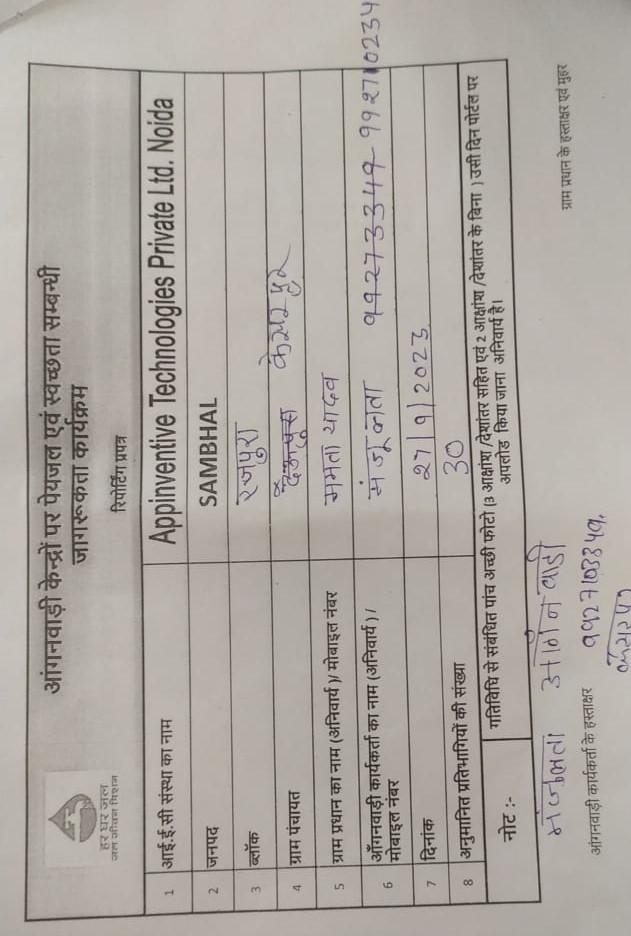 हर घर जल
जल जीवन मिशन
आंगनवाड़ी केन्द्रों पर पेयजल एवं स्वच्छता सम्बन्धी
जागरूकता कार्यक्रम
रिपोर्टिंग प्रपत्र
1 आई.ई.सी संस्था का नाम Appinventive Technologies Private Ltd. Noida
2 जनपद SAMBHAL
3 ब्लॉक रजपुरा
4 ग्राम पंचायत केसरपुर
5 ग्राम प्रधान का नाम (अनिवार्य)/ मोबाइल नंबर ममता यादव
6 आँगनवाड़ी कार्यकर्ता का नाम (अनिवार्य) / मंजूलता
मोबाइल नंबर
7 दिनांक 27/9/2023
8 अनुमानित प्रतिभागियों की संख्या 30
नोट :- गतिविधि से संबंधित पांच अच्छी फोटो (3 आक्षांश /देशांतर सहित एवं 2 आक्षांश /देशांतर के बिना ) उसी दिन पोर्टल पर
अपलोड किया जाना अनिवार्य है।
मंजूलता आंगनवाड़ी
आंगनवाड़ी कार्यकर्ता के हस्ताक्षर ग्राम प्रधान के हस्ताक्षर एवं मुहर
केसरपुर